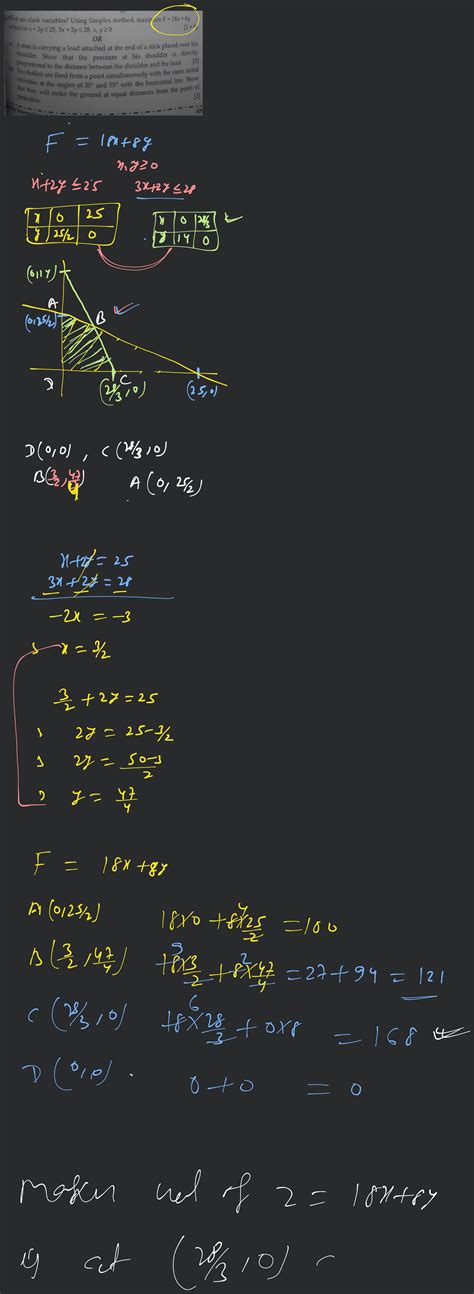 What are slack variables? Using Simplex method, maximize F = 18x + 8y
subject to x + 2y ≤ 25, 3x + 2y ≤ 28, x, y ≥ 0
OR
A man is carrying a load attached at the end of a stick placed over his
shoulder. Show that the pressure at his shoulder is directly
proportional to the distance between the shoulder and the load. [3]
Two bullets are fired from a point simultaneously with the same initial
velocities at the angles of 35° and 55° with the horizontal line. Show
that they will strike the ground at equal distances from the point of
projection. [2]
F = 18x+8y
x,y≥0
x+2y ≤ 25 3x+2y ≤ 28
x 0 25
y 25/2 0
x 0 28/3
y 14 0
(0,14)
A
(0,25/2)
B
D
C
(28/3,0)
(25,0)
D(0,0) , C(28/3,0)
B(3/2,47/4) A(0,25/2)
x+2y = 25
3x+2y = 28
-2x = -3
x = 3/2
3/2 + 2y = 25
2y = 25-3/2
2y = 50-3/2
y = 47/4
F = 18x+8y
A(0,25/2) 18×0 + 8×25/2 = 100
B(3/2,47/4) 18×3/2 + 8×47/4 = 27+94 = 121
C(28/3,0) 18×28/3 + 0×8 = 168
D(0,0) . 0+0 = 0
of Z = 18x+8y
at (28/3,0)